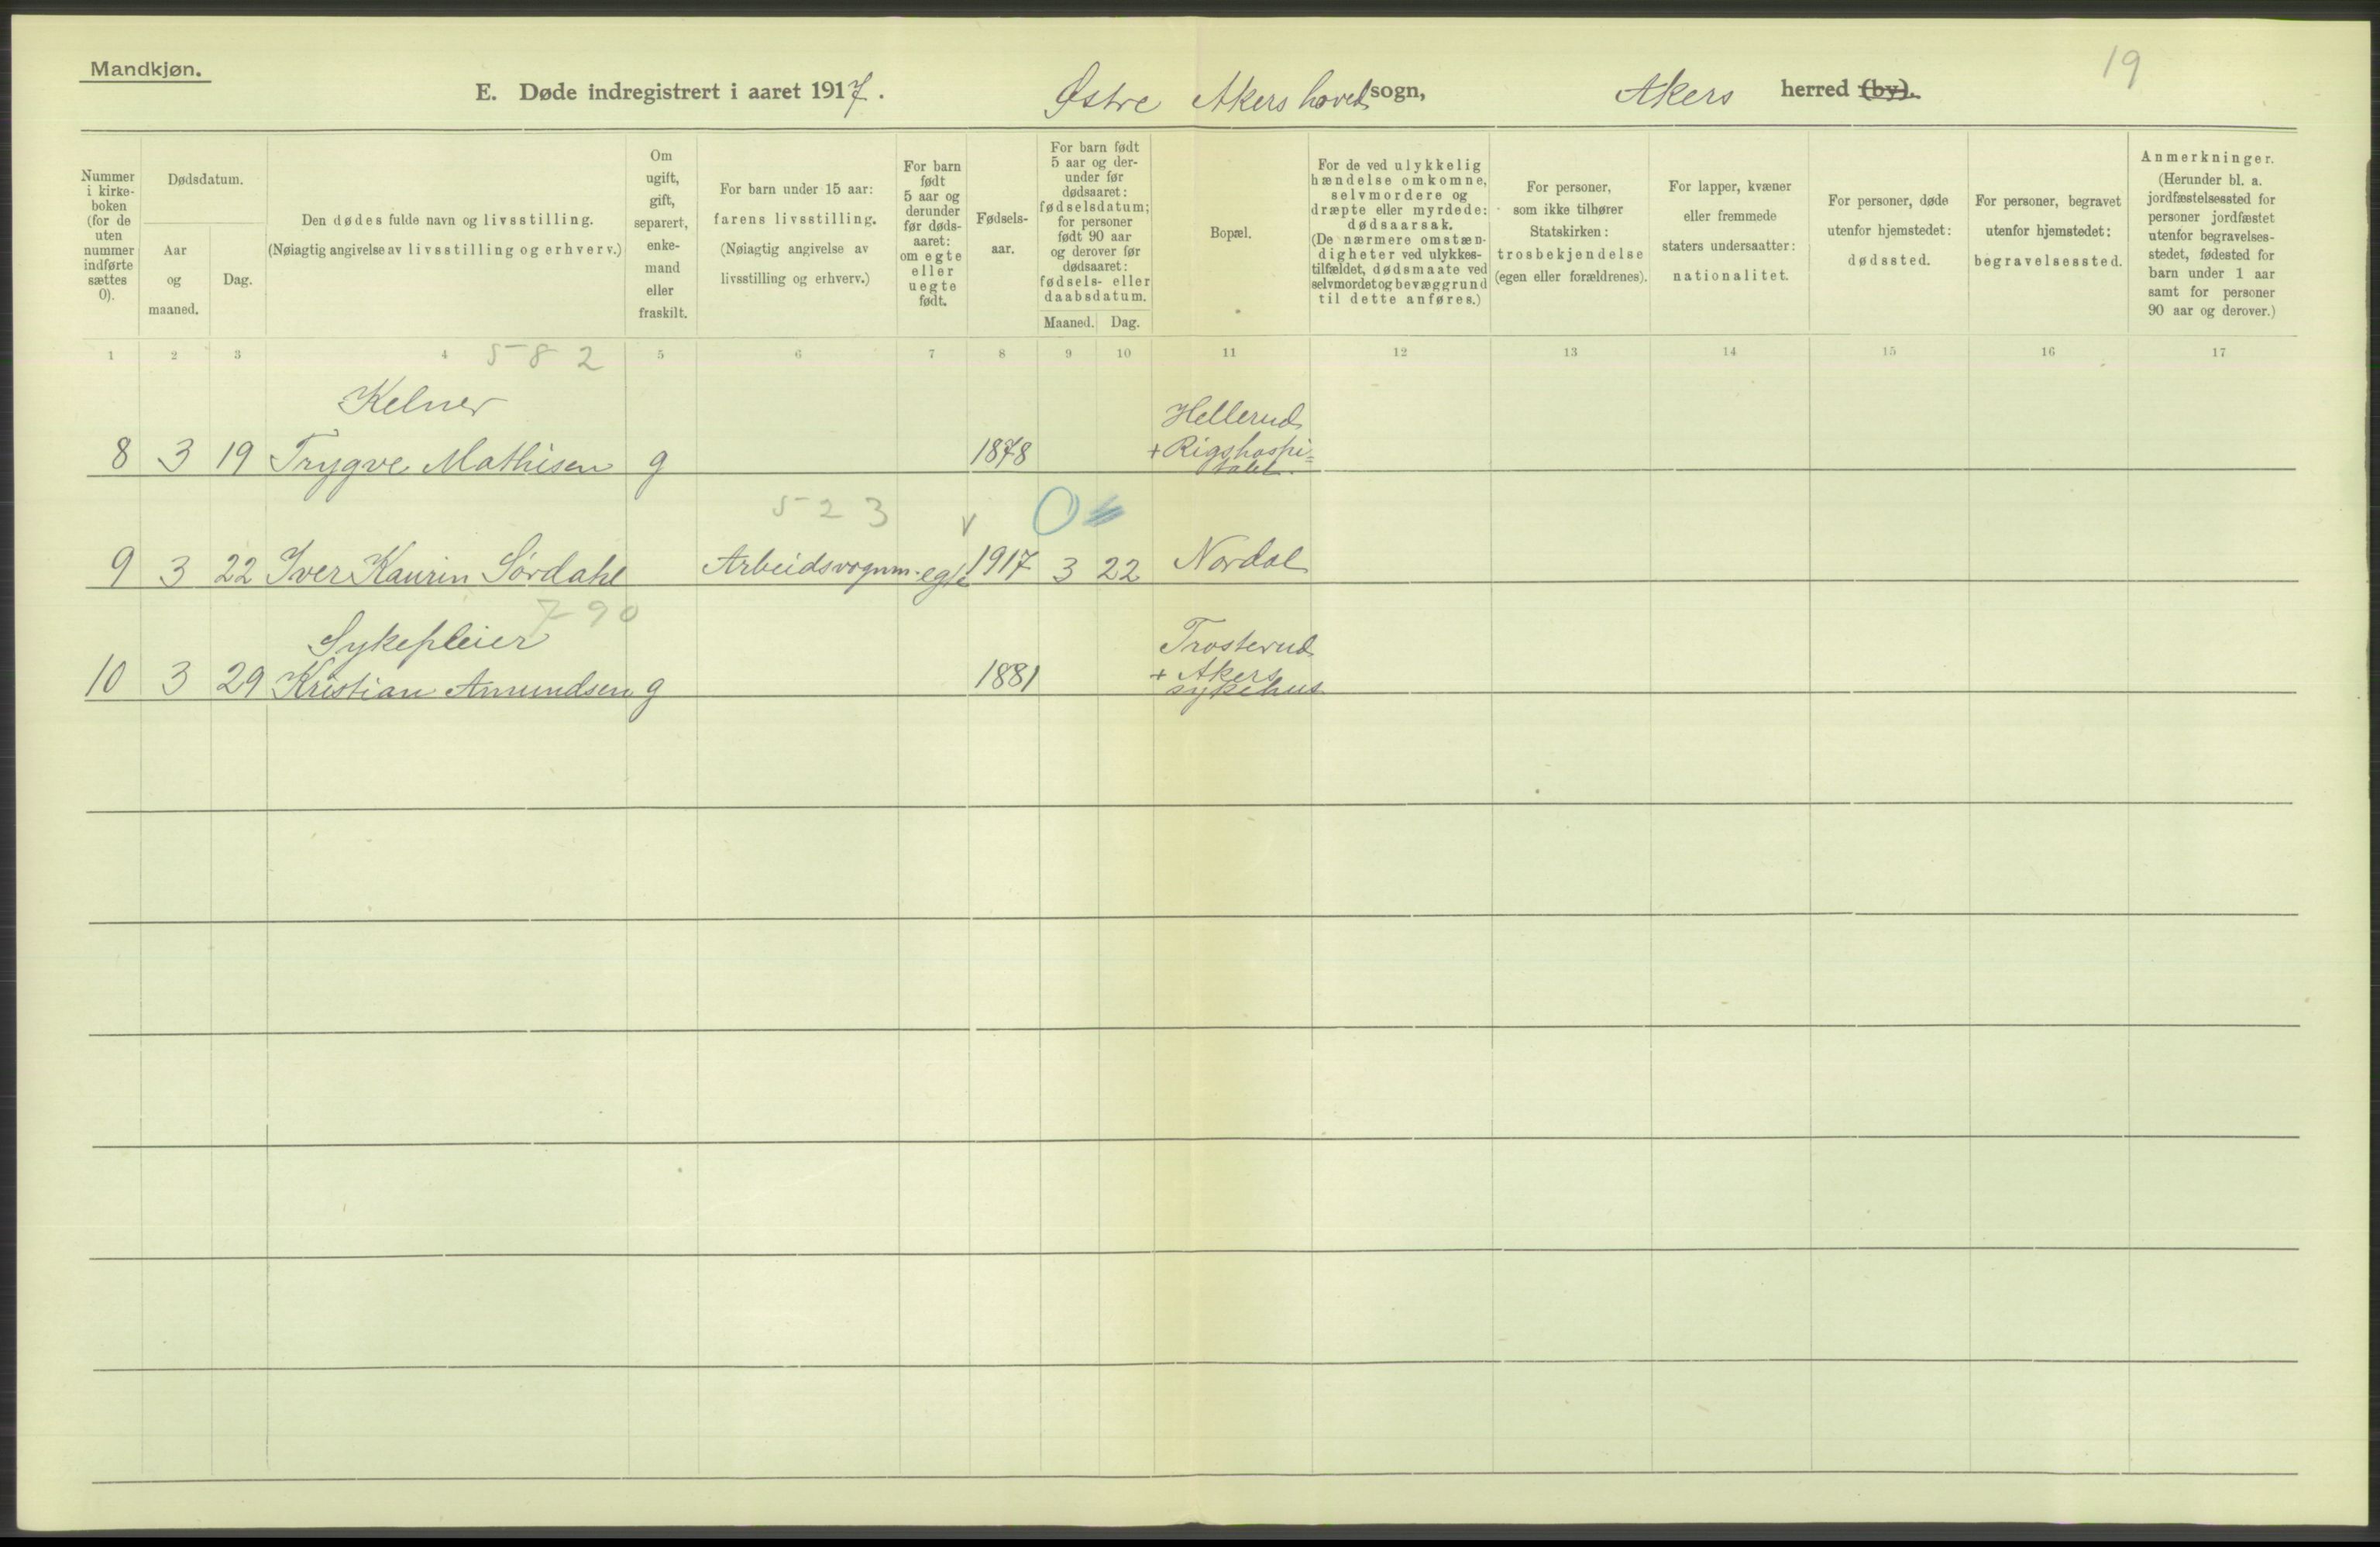 Mandkjøn.
19
E. Døde indregistrert i aaret 1917. Østre Akers hoved sogn, Akers herred (by).
Nummer i kirke- boken (for de uten nummer indførte sættes 0).
Dødsdatum.
Aar og maaned.
Dag.
Den dødes fulde navn og livsstilling.
(Nøiagtig angivelse av livsstilling og erhverv.)
Om ugift, gift, separert, enke- mand eller fraskilt.
For barn under 15 aar:
farens livsstilling.
(Nøiagtig angivelse av
livsstilling og erhverv.)
For barn født 5 aar og derunder før døds- aaret: om egte eller uegte født.
Fødsels- aar.
For barn født 5 aar og der- under før dødsaaret: fødselsdatum; for personer født 90 aar og derover før dødsaaret: fødsels- eller daabsdatum.
Maaned. Dag.
Bopæl.
For de ved ulykkelig hændelse omkomne, selvmordere og dræpte eller myrdede: dødsaarsak. (De nærmere omstæn- digheter ved ulykkes- tilfældet, dødsmaate ved selvmordet og bevæggrund til dette anføres.)
For personer, som ikke tilhører Statskirken: trosbekjendelse (egen eller forældrenes).
For lapper, kvæner eller fremmede staters undersaatter: nationalitet.
For personer, døde utenfor hjemstedet: dødssted.
For personer, begravet utenfor hjemstedet: begravelsessted.
Anmerkninger. (Herunder bl. a. jordfæstelsessted for personer jordfæstet utenfor begravelses- stedet, fødested for barn under 1 aar samt for personer 90 aar og derover.)
1 2 3 4 5 6 7 8 9 10 11 12 13 14 15 16 17
582
Kelner
Hellerud
8 3 19 Trygve Mathisen g 1878 + Rigshospi=
talet.
523 0
9 3 22 Iver Kaurin Sørdahl Arbeidsvognm. egte 1917 3 22 Nordal
790
Sykepleier
Trosterud
10 3 29 Kristian Amundsen g 1881 + Akers
sykehus